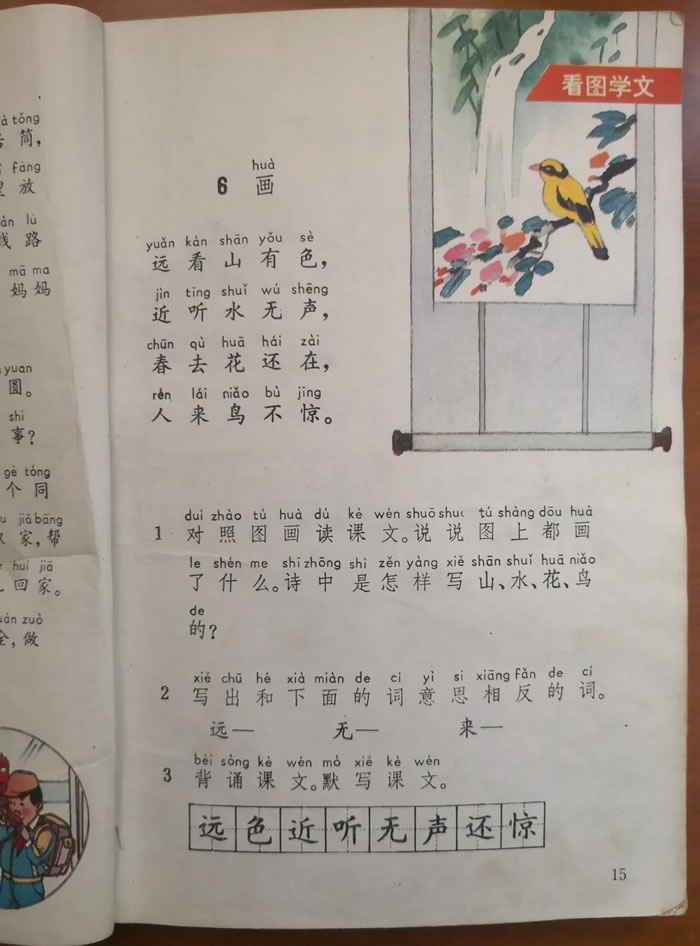 à tǒng
筒,
fàng
放
àn lù
线 路
mā ma
妈 妈
yuan
圆。
shi
事?
gè tóng
个 同
jiā bāng
家,帮
huí jiā
回 家。
uán zuò
全,做
看图学文
huà
6 画
yuǎn kàn shān yǒu sè
远 看 山 有 色,
jìn tīng shuǐ wú shēng
近 听 水 无 声,
chūn qù huā hái zài
春 去 花 还 在,
rén lái niǎo bù jīng
人 来 鸟 不 惊。
duì zhào tú huà dú kè wén shuō shuo tú shàng dōu huà
1 对 照 图 画 读 课 文。说 说 图 上 都 画
le shén me shī zhōng shì zěn yàng xiě shān shuǐ huā niǎo
了 什 么。诗 中 是 怎 样 写 山、水、花、鸟
de
的?
xiě chū hé xià miàn de cí yì si xiāng fǎn de cí
2 写 出 和 下 面 的 词 意 思 相 反 的 词。
远— 无— 来—
bèi sòng kè wén mò xiě kè wén
3 背 诵 课 文。默 写 课 文。
远 色 近 听 无 声 还 惊
15